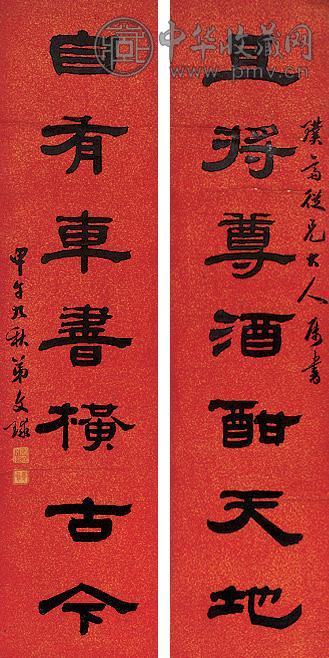 中华收藏网
www.pmv.cn
齋從兄大人属書
且將尊酒酣天地
自有車書橫古今
甲午九秋弟文